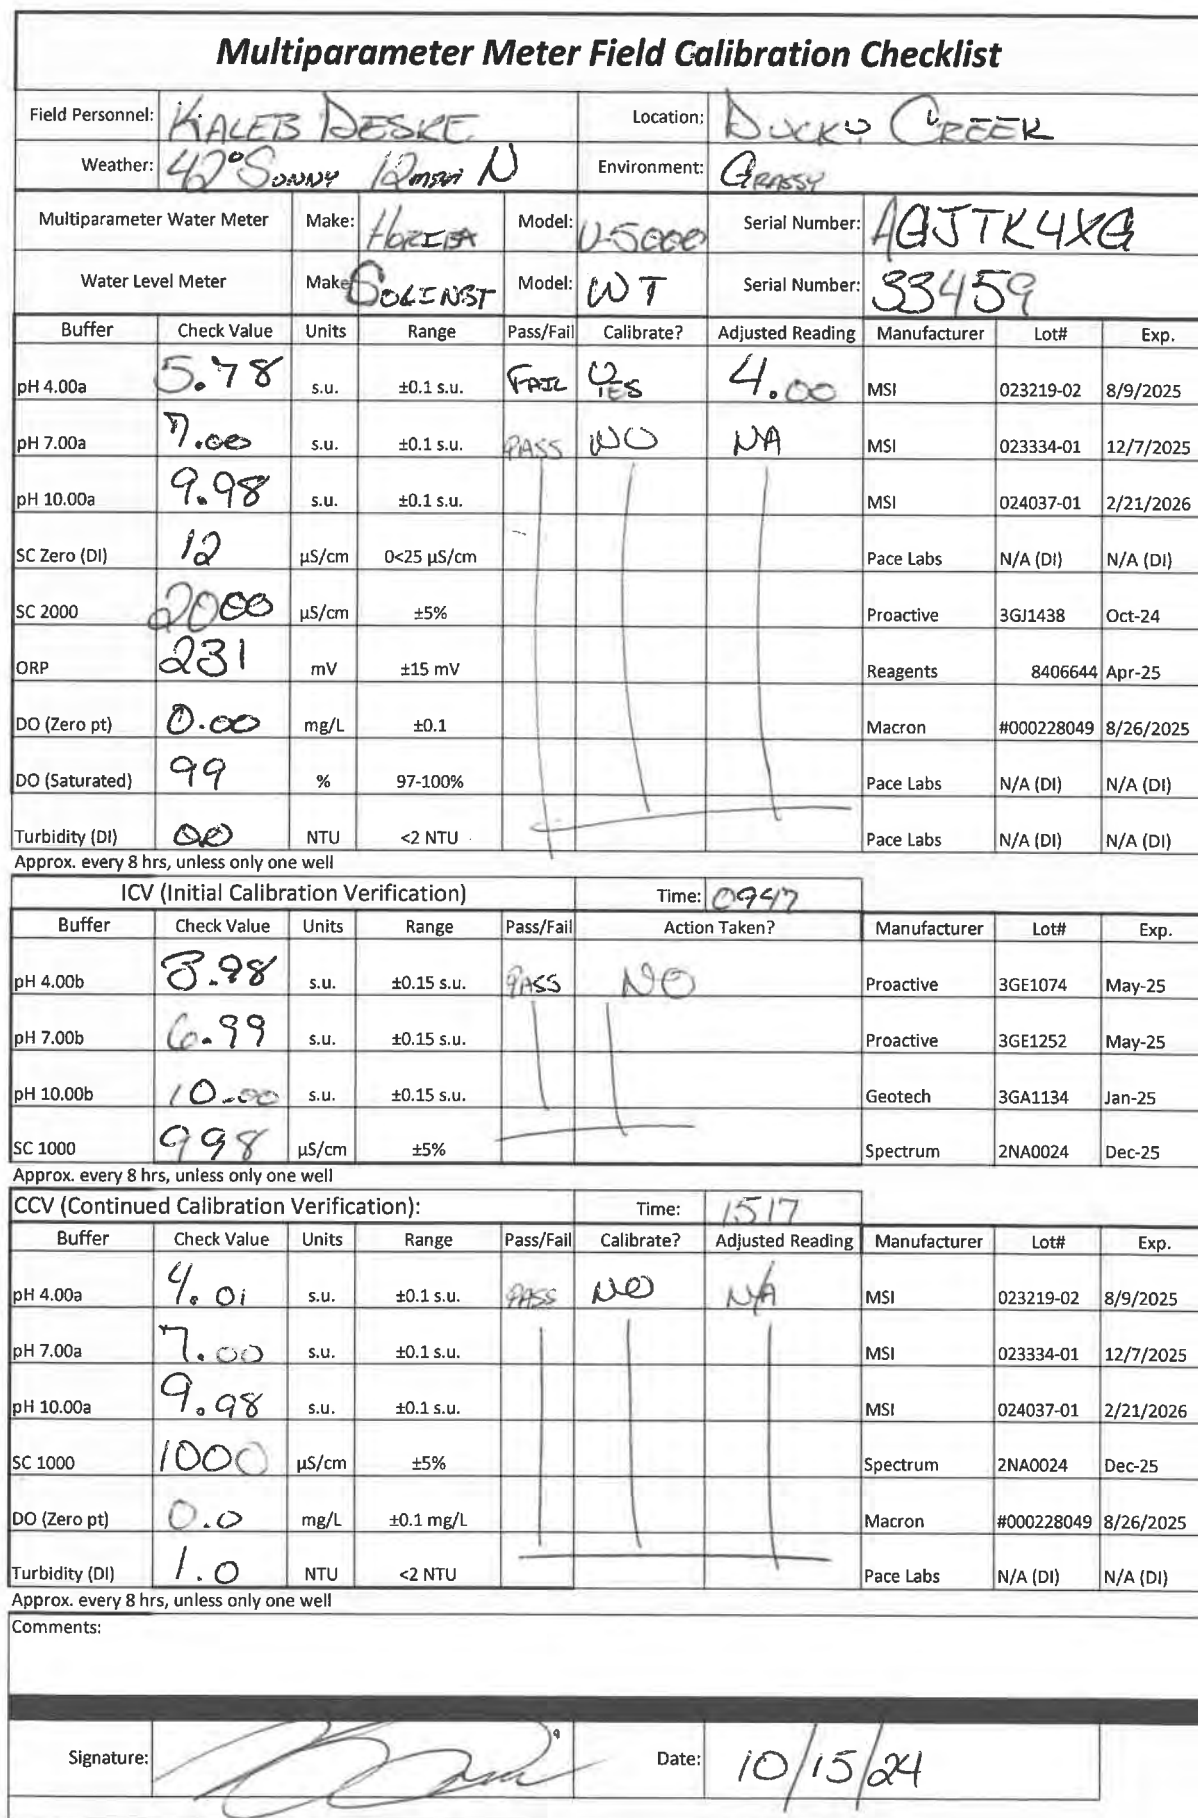 Multiparameter Meter Field Calibration Checklist
Field Personnel: KALEB DESKE Location: DUCKY CREEK
Weather: 42° SUNNY 12mph N Environment: GRASSY
Multiparameter Water Meter Make: HORIBA Model: U-5000 Serial Number: AGJTK4XG
Water Level Meter Make SOLINST Model: WT Serial Number: 33459
Buffer Check Value Units Range Pass/Fail Calibrate? Adjusted Reading Manufacturer Lot# Exp.
pH 4.00a 5.78 s.u. ±0.1 s.u. FAIL YES 4.00 MSI 023219-02 8/9/2025
pH 7.00a 7.00 s.u. ±0.1 s.u. PASS NO NA MSI 023334-01 12/7/2025
pH 10.00a 9.98 s.u. ±0.1 s.u. MSI 024037-01 2/21/2026
SC Zero (DI) 12 µS/cm 0<25 µS/cm Pace Labs N/A (DI) N/A (DI)
SC 2000 2000 µS/cm ±5% Proactive 3GJ1438 Oct-24
ORP 231 mV ±15 mV Reagents 8406644 Apr-25
DO (Zero pt) 0.00 mg/L ±0.1 Macron #000228049 8/26/2025
DO (Saturated) 99 % 97-100% Pace Labs N/A (DI) N/A (DI)
Turbidity (DI) 0.0 NTU <2 NTU Pace Labs N/A (DI) N/A (DI)
Approx. every 8 hrs, unless only one well
ICV (Initial Calibration Verification) Time: 0947
Buffer Check Value Units Range Pass/Fail Action Taken? Manufacturer Lot# Exp.
pH 4.00b 3.98 s.u. ±0.15 s.u. PASS NO Proactive 3GE1074 May-25
pH 7.00b 6.99 s.u. ±0.15 s.u. Proactive 3GE1252 May-25
pH 10.00b 10.00 s.u. ±0.15 s.u. Geotech 3GA1134 Jan-25
SC 1000 998 µS/cm ±5% Spectrum 2NA0024 Dec-25
Approx. every 8 hrs, unless only one well
CCV (Continued Calibration Verification): Time: 1517
Buffer Check Value Units Range Pass/Fail Calibrate? Adjusted Reading Manufacturer Lot# Exp.
pH 4.00a 4.01 s.u. ±0.1 s.u. PASS NO N/A MSI 023219-02 8/9/2025
pH 7.00a 7.00 s.u. ±0.1 s.u. MSI 023334-01 12/7/2025
pH 10.00a 9.98 s.u. ±0.1 s.u. MSI 024037-01 2/21/2026
SC 1000 1000 µS/cm ±5% Spectrum 2NA0024 Dec-25
DO (Zero pt) 0.0 mg/L ±0.1 mg/L Macron #000228049 8/26/2025
Turbidity (DI) 1.0 NTU <2 NTU Pace Labs N/A (DI) N/A (DI)
Approx. every 8 hrs, unless only one well
Comments:
Signature: Date: 10/15/24